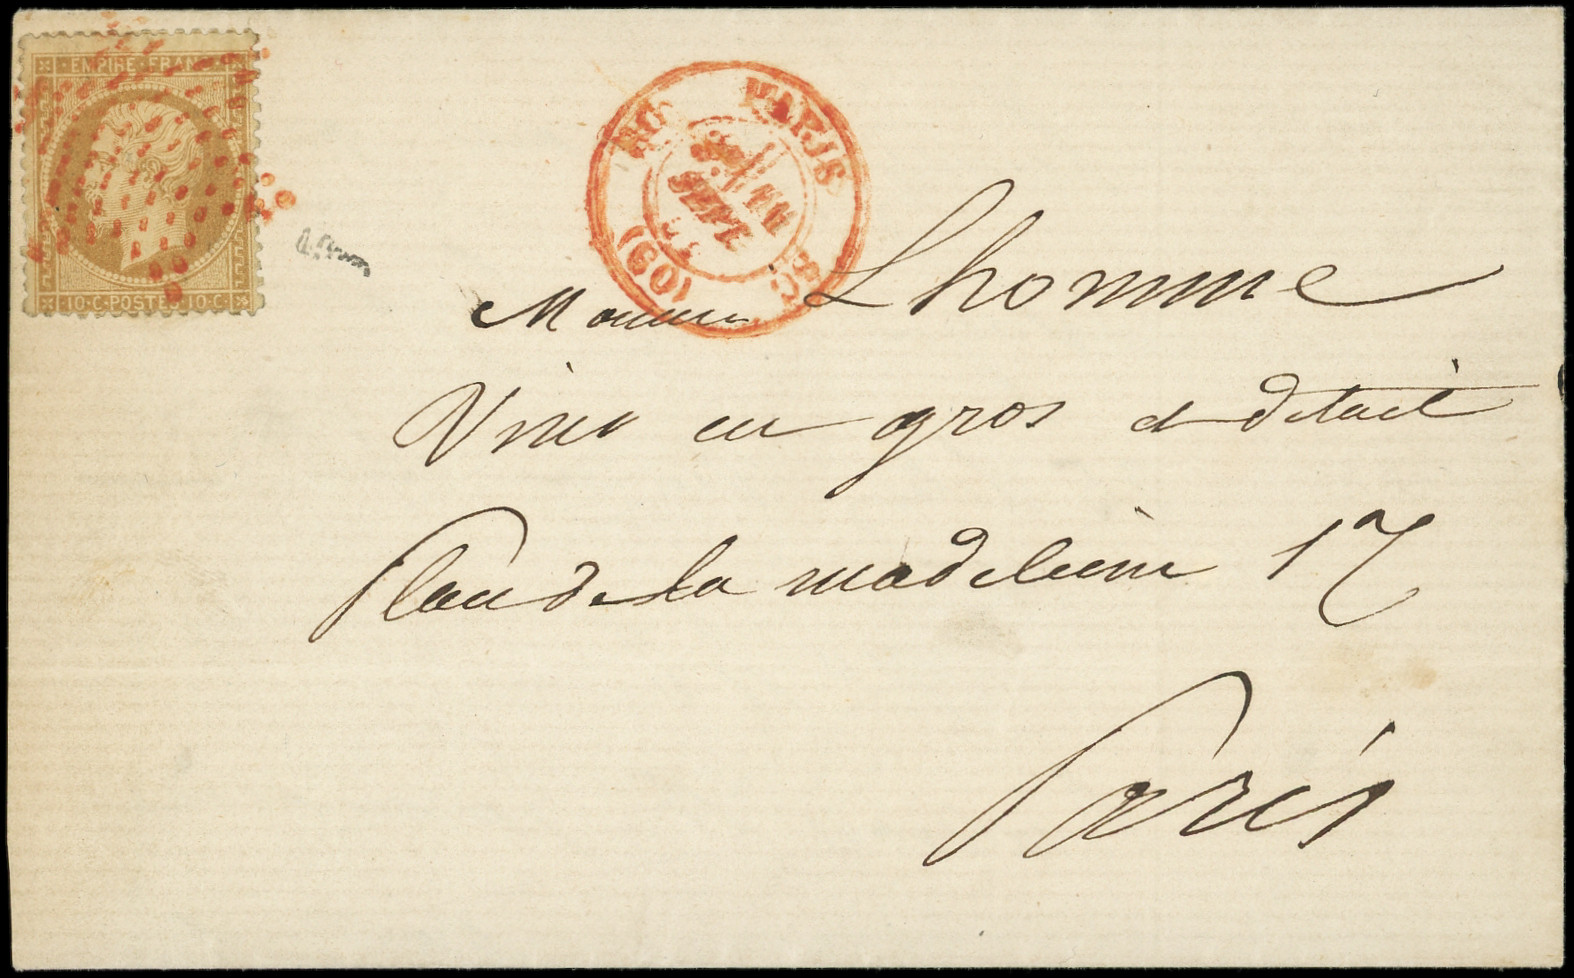 EMPIRE FRANC
10·C·POSTES·10·C·
PARIS
(60)
SEPT
Monsieur Lhomme
Vins en gros et détail
Place de la madeleine 17
Paris